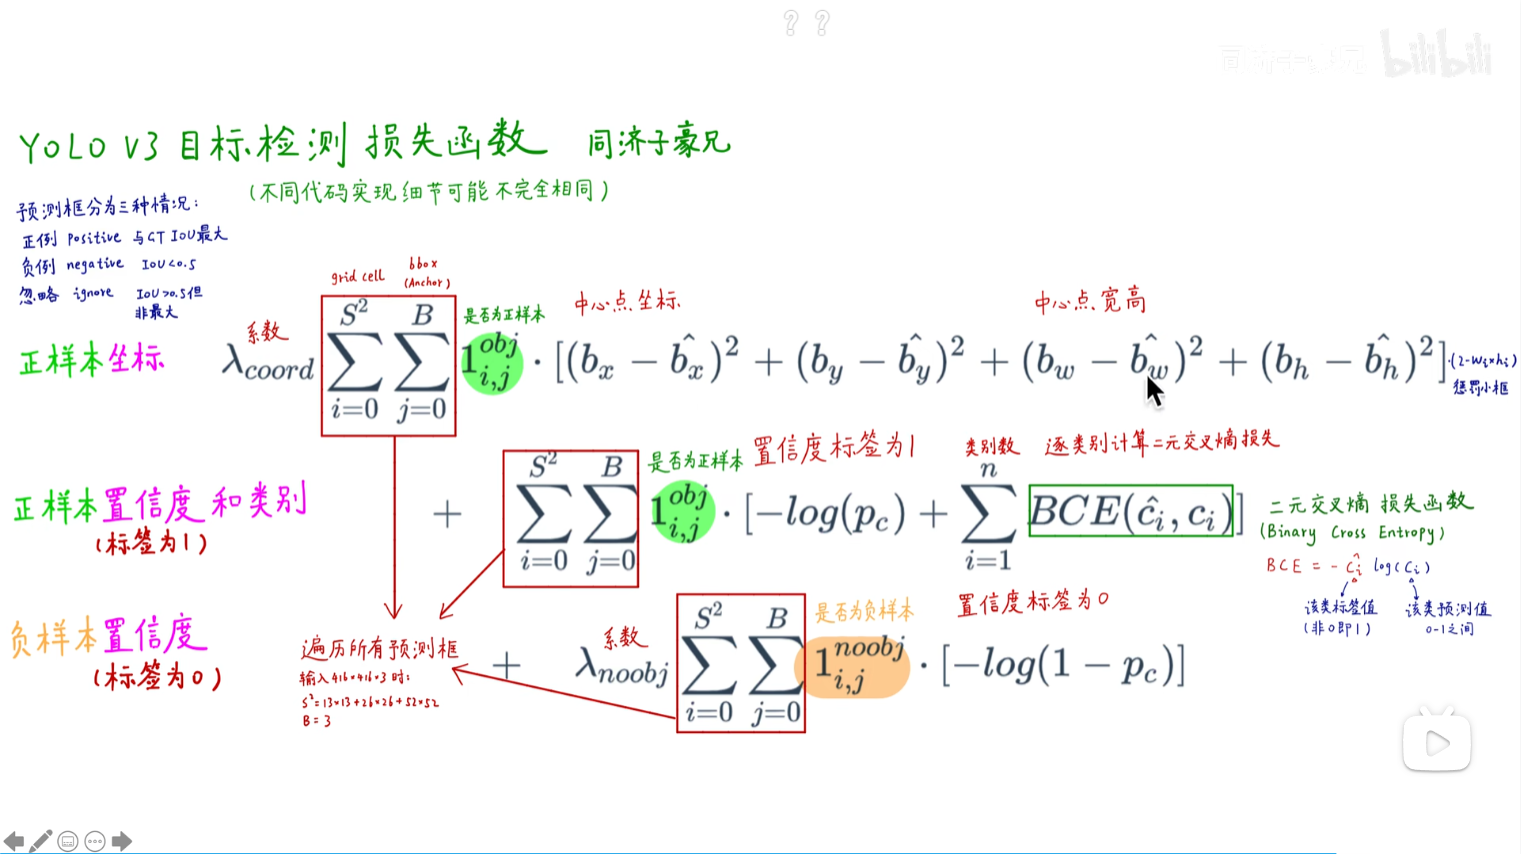 ? ?
bilibili
YOLO V3 目标检测 损失函数 同济子豪兄
(不同代码实现细节可能不完全相同)
预测框分为三种情况:
正例 positive 与GT IOU最大
负例 negative IOU<0.5
忽略 ignore IOU>0.5但
非最大
grid cell
bbox
(Anchor)
系数
是否为正样本
中心点坐标
中心点宽高
正样本坐标
λ_coord ∑_{i=0}^{S²} ∑_{j=0}^{B} 1_{i,j}^{obj} · [(b_x − \hat{b_x})² + (b_y − \hat{b_y})² + (b_w − \hat{b_w})² + (b_h − \hat{b_h})²]·(2-wᵢ×hᵢ)
惩罚小框
是否为正样本
置信度标签为1
类别数
逐类别计算二元交叉熵损失
正样本置信度和类别
(标签为1)
+ ∑_{i=0}^{S²} ∑_{j=0}^{B} 1_{i,j}^{obj} · [−log(p_c) + ∑_{i=1}^{n} BCE(ĉ_i, c_i)]
二元交叉熵 损失函数
(Binary Cross Entropy)
BCE = - ĉᵢ log(cᵢ)
该类标签值
(非0即1)
该类预测值
0-1之间
是否为负样本
置信度标签为0
负样本置信度
(标签为0)
遍历所有预测框
输入416×416×3时:
S²=13×13+26×26+52×52
B=3
系数
+ λ_noobj ∑_{i=0}^{S²} ∑_{j=0}^{B} 1_{i,j}^{noobj} · [−log(1 − p_c)]